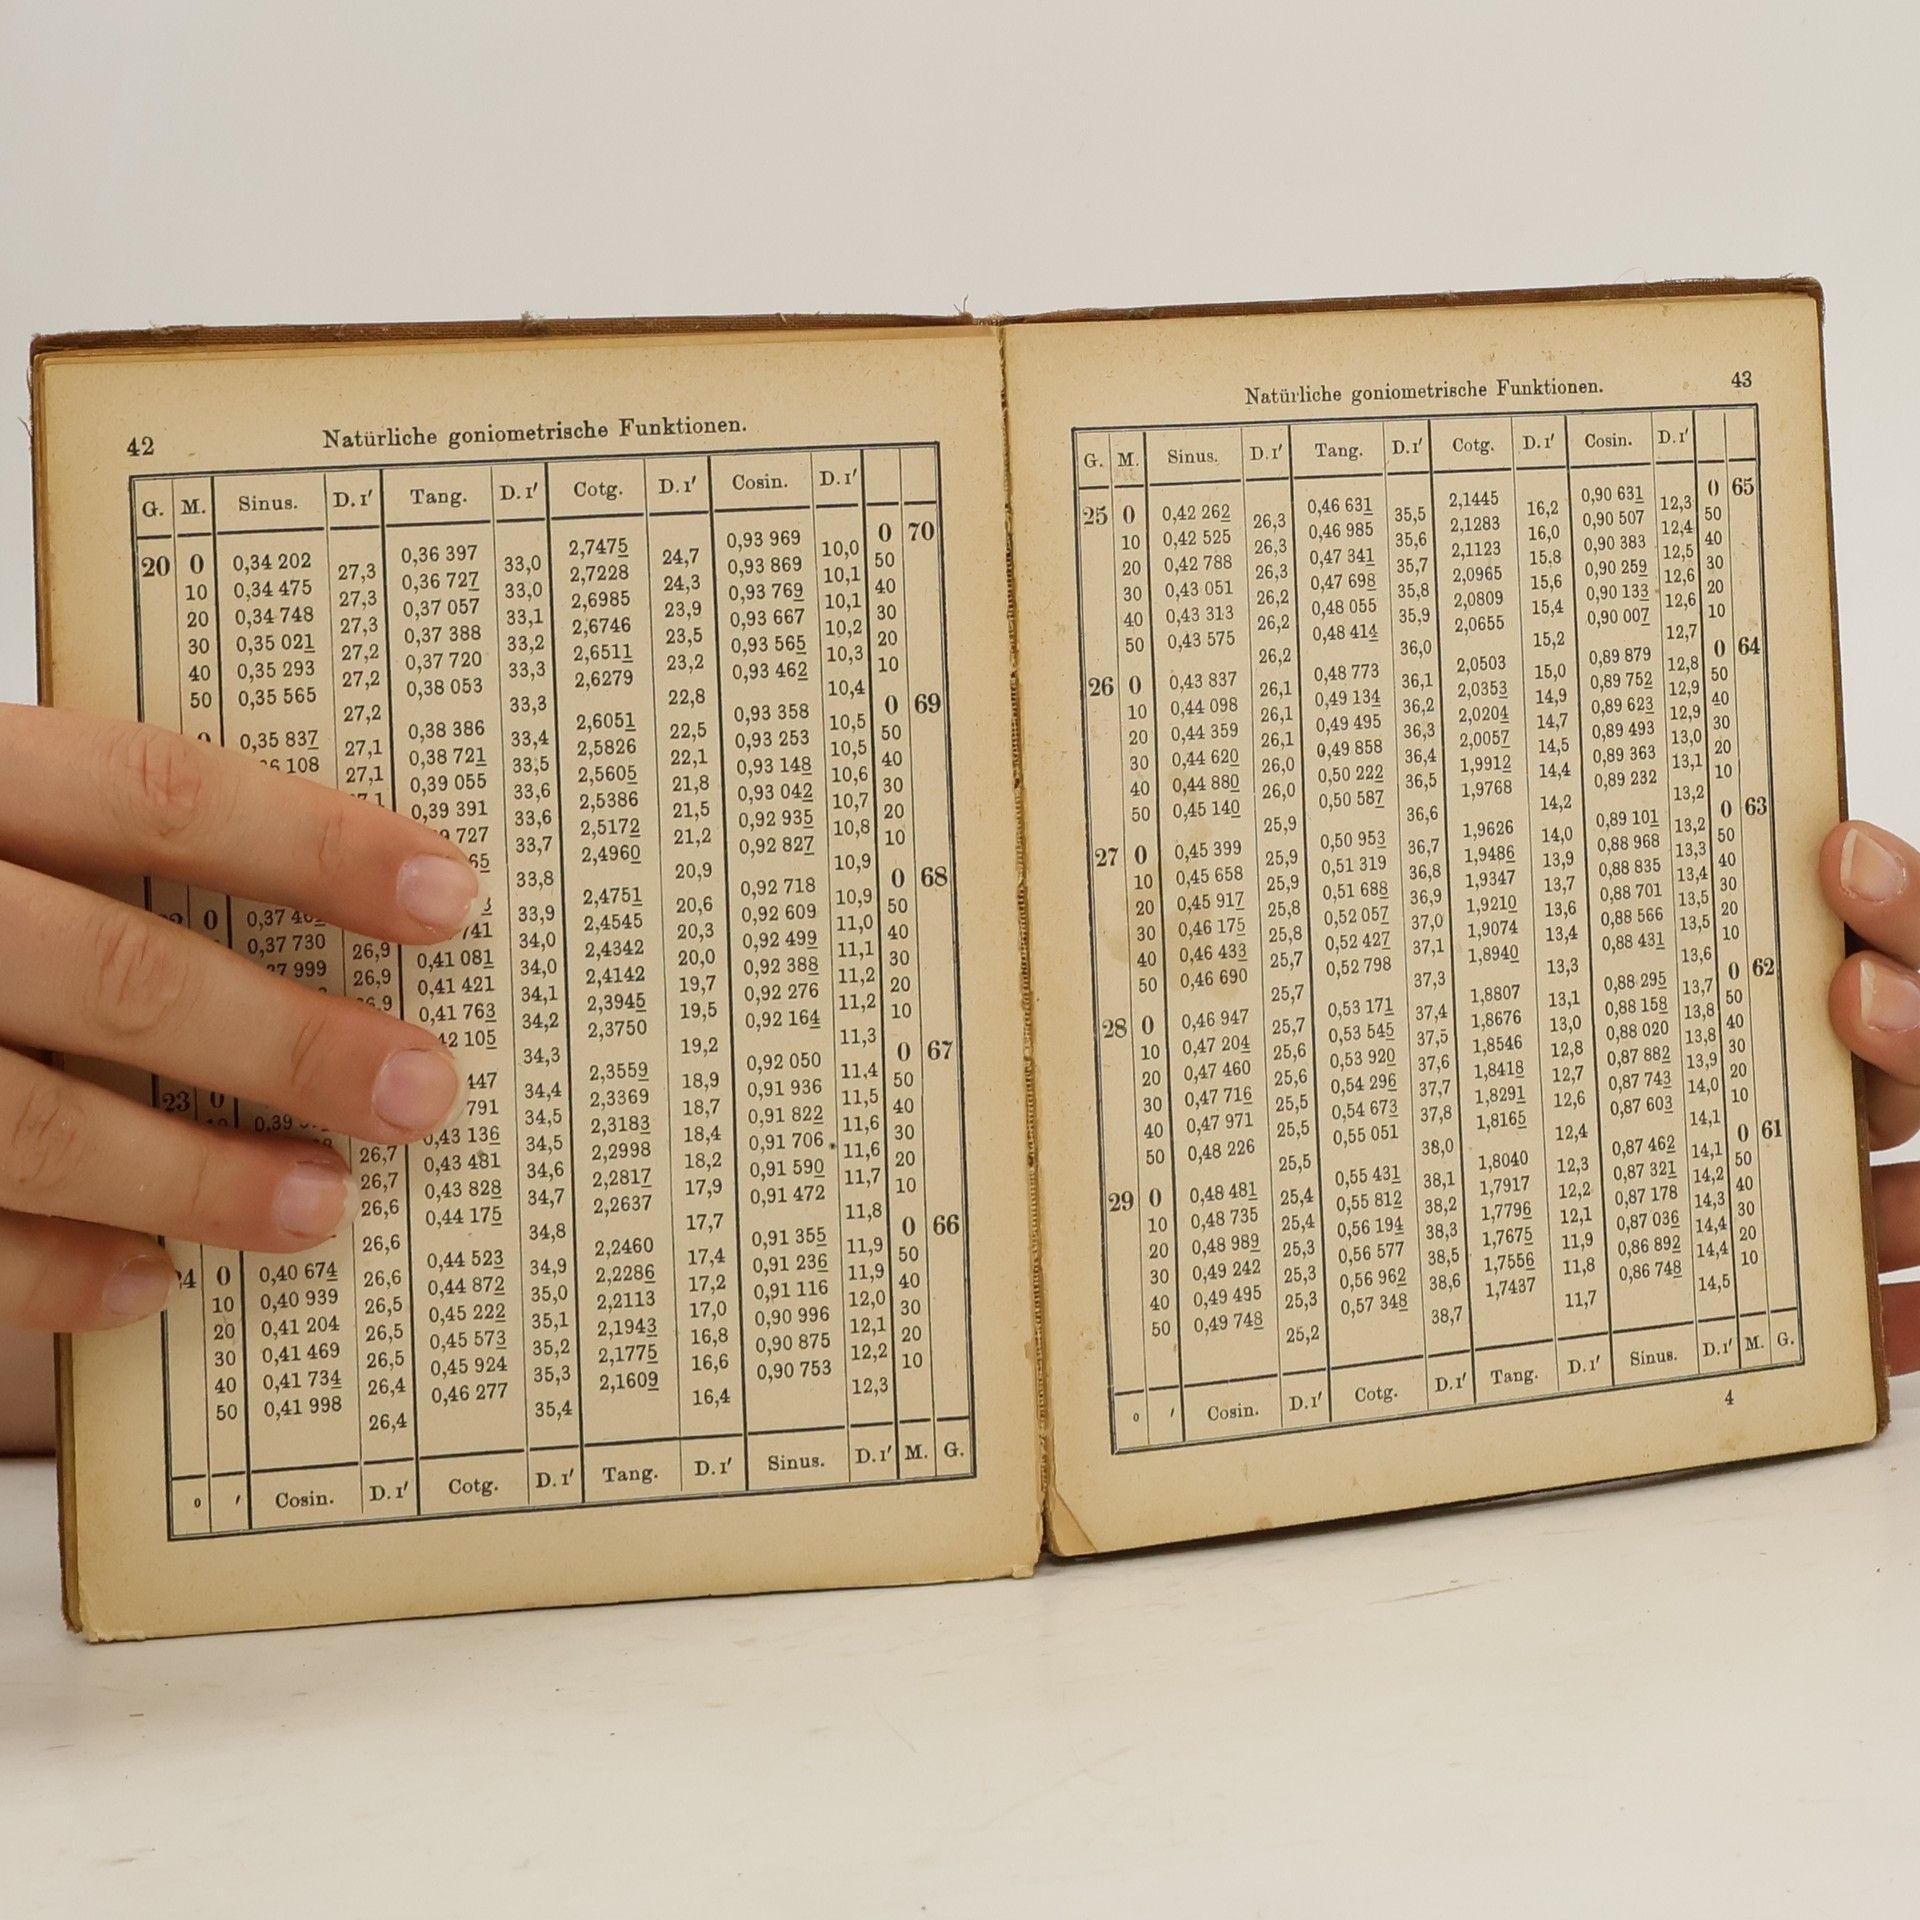 42 Natürliche goniometrische Funktionen.
G. M. Sinus. D. 1′ Tang. D. 1′ Cotg. D. 1′ Cosin. D. 1′
20 0 0,34 202 27,3 0,36 397 33,0 2,7475 24,7 0,93 969 10,0 0 70
10 0,34 475 27,3 0,36 727 33,0 2,7228 24,3 0,93 869 10,1 50
20 0,34 748 27,3 0,37 057 33,1 2,6985 23,9 0,93 769 10,1 40
30 0,35 021 27,2 0,37 388 33,2 2,6746 23,5 0,93 667 10,2 30
40 0,35 293 27,2 0,37 720 33,3 2,6511 23,2 0,93 565 10,3 20
50 0,35 565 27,2 0,38 053 33,3 2,6279 22,8 0,93 462 10,4 10
0,35 837 27,1 0,38 386 33,4 2,6051 22,5 0,93 358 10,5 0 69
108 27,1 0,38 721 33,5 2,5826 22,1 0,93 253 10,5 50
0,39 055 33,6 2,5605 21,8 0,93 148 10,6 40
0,39 391 33,6 2,5386 21,5 0,93 042 10,7 30
727 33,7 2,5172 21,2 0,92 935 10,8 20
65 33,8 2,4960 20,9 0,92 827 10,9 10
0 33,9 2,4751 20,6 0,92 718 10,9 0 68
0,37 730 26,9 741 34,0 2,4545 20,3 0,92 609 11,0 50
999 26,9 0,41 081 34,0 2,4342 20,0 0,92 499 11,1 40
0,41 421 34,1 2,4142 19,7 0,92 388 11,2 30
0,41 763 34,2 2,3945 19,5 0,92 276 11,2 20
105 34,3 2,3750 19,2 0,92 164 11,3 10
23 0 447 34,4 2,3559 18,9 0,92 050 11,4 0 67
791 34,5 2,3369 18,7 0,91 936 11,5 50
26,7 0,43 136 34,5 2,3183 18,4 0,91 822 11,6 40
26,7 0,43 481 34,6 2,2998 18,2 0,91 706 11,6 30
26,6 0,43 828 34,7 2,2817 17,9 0,91 590 11,7 20
26,6 0,44 175 34,8 2,2637 17,7 0,91 472 11,8 10
0 0,40 674 26,6 0,44 523 34,9 2,2460 17,4 0,91 355 11,9 0 66
10 0,40 939 26,5 0,44 872 35,0 2,2286 17,2 0,91 236 11,9 50
20 0,41 204 26,5 0,45 222 35,1 2,2113 17,0 0,91 116 12,0 40
30 0,41 469 26,5 0,45 573 35,2 2,1943 16,8 0,90 996 12,1 30
40 0,41 734 26,4 0,45 924 35,3 2,1775 16,6 0,90 875 12,2 20
50 0,41 998 26,4 0,46 277 35,4 2,1609 16,4 0,90 753 12,3 10
° ′ Cosin. D. 1′ Cotg. D. 1′ Tang. D. 1′ Sinus. D. 1′ M. G.
Natürliche goniometrische Funktionen. 43
G. M. Sinus. D. 1′ Tang. D. 1′ Cotg. D. 1′ Cosin. D. 1′
25 0 0,42 262 26,3 0,46 631 35,5 2,1445 16,2 0,90 631 12,3 0 65
10 0,42 525 26,3 0,46 985 35,6 2,1283 16,0 0,90 507 12,4 50
20 0,42 788 26,3 0,47 341 35,7 2,1123 15,8 0,90 383 12,5 40
30 0,43 051 26,2 0,47 698 35,8 2,0965 15,6 0,90 259 12,6 30
40 0,43 313 26,2 0,48 055 35,9 2,0809 15,4 0,90 133 12,6 20
50 0,43 575 26,2 0,48 414 36,0 2,0655 15,2 0,90 007 12,7 10
26 0 0,43 837 26,1 0,48 773 36,1 2,0503 15,0 0,89 879 12,8 0 64
10 0,44 098 26,1 0,49 134 36,2 2,0353 14,9 0,89 752 12,9 50
20 0,44 359 26,1 0,49 495 36,3 2,0204 14,7 0,89 623 12,9 40
30 0,44 620 26,0 0,49 858 36,4 2,0057 14,5 0,89 493 13,0 30
40 0,44 880 26,0 0,50 222 36,5 1,9912 14,4 0,89 363 13,1 20
50 0,45 140 25,9 0,50 587 36,6 1,9768 14,2 0,89 232 13,2 10
27 0 0,45 399 25,9 0,50 953 36,7 1,9626 14,0 0,89 101 13,2 0 63
10 0,45 658 25,9 0,51 319 36,8 1,9486 13,9 0,88 968 13,3 50
20 0,45 917 25,8 0,51 688 36,9 1,9347 13,7 0,88 835 13,4 40
30 0,46 175 25,8 0,52 057 37,0 1,9210 13,6 0,88 701 13,5 30
40 0,46 433 25,7 0,52 427 37,1 1,9074 13,4 0,88 566 13,5 20
50 0,46 690 25,7 0,52 798 37,3 1,8940 13,3 0,88 431 13,6 10
28 0 0,46 947 25,7 0,53 171 37,4 1,8807 13,1 0,88 295 13,7 0 62
10 0,47 204 25,6 0,53 545 37,5 1,8676 13,0 0,88 158 13,8 50
20 0,47 460 25,6 0,53 920 37,6 1,8546 12,8 0,88 020 13,8 40
30 0,47 716 25,5 0,54 296 37,7 1,8418 12,7 0,87 882 13,9 30
40 0,47 971 25,5 0,54 673 37,8 1,8291 12,6 0,87 743 14,0 20
50 0,48 226 25,5 0,55 051 38,0 1,8165 12,4 0,87 603 14,1 10
29 0 0,48 481 25,4 0,55 431 38,1 1,8040 12,3 0,87 462 14,1 0 61
10 0,48 735 25,4 0,55 812 38,2 1,7917 12,2 0,87 321 14,2 50
20 0,48 989 25,3 0,56 194 38,3 1,7796 12,1 0,87 178 14,3 40
30 0,49 242 25,3 0,56 577 38,5 1,7675 11,9 0,87 036 14,4 30
40 0,49 495 25,3 0,56 962 38,6 1,7556 11,8 0,86 892 14,4 20
50 0,49 748 25,2 0,57 348 38,7 1,7437 11,7 0,86 748 14,5 10
° ′ Cosin. D. 1′ Cotg. D. 1′ Tang. D. 1′ Sinus. D. 1′ M. G.
4